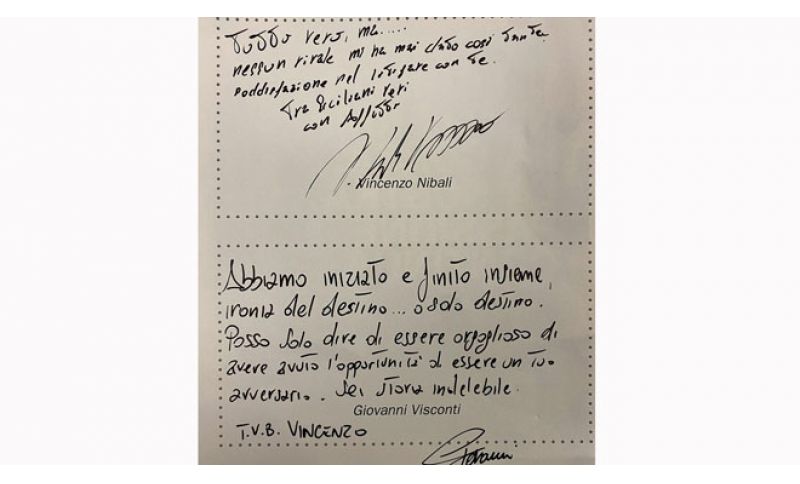 Tutto vero, ma.....
nessun rivale mi ha mai dato così tanta
soddisfazione nel litigare con te.
Tra Siciliani veri
con affetto
Vincenzo Nibali
Abbiamo iniziato e finito insieme,
ironia del destino... o solo destino.
Posso solo dire di essere orgoglioso di
avere avuto l'opportunità di essere un tuo
avversario. Sei storia indelebile.
Giovanni Visconti
T.V.B. VINCENZO
Giovanni